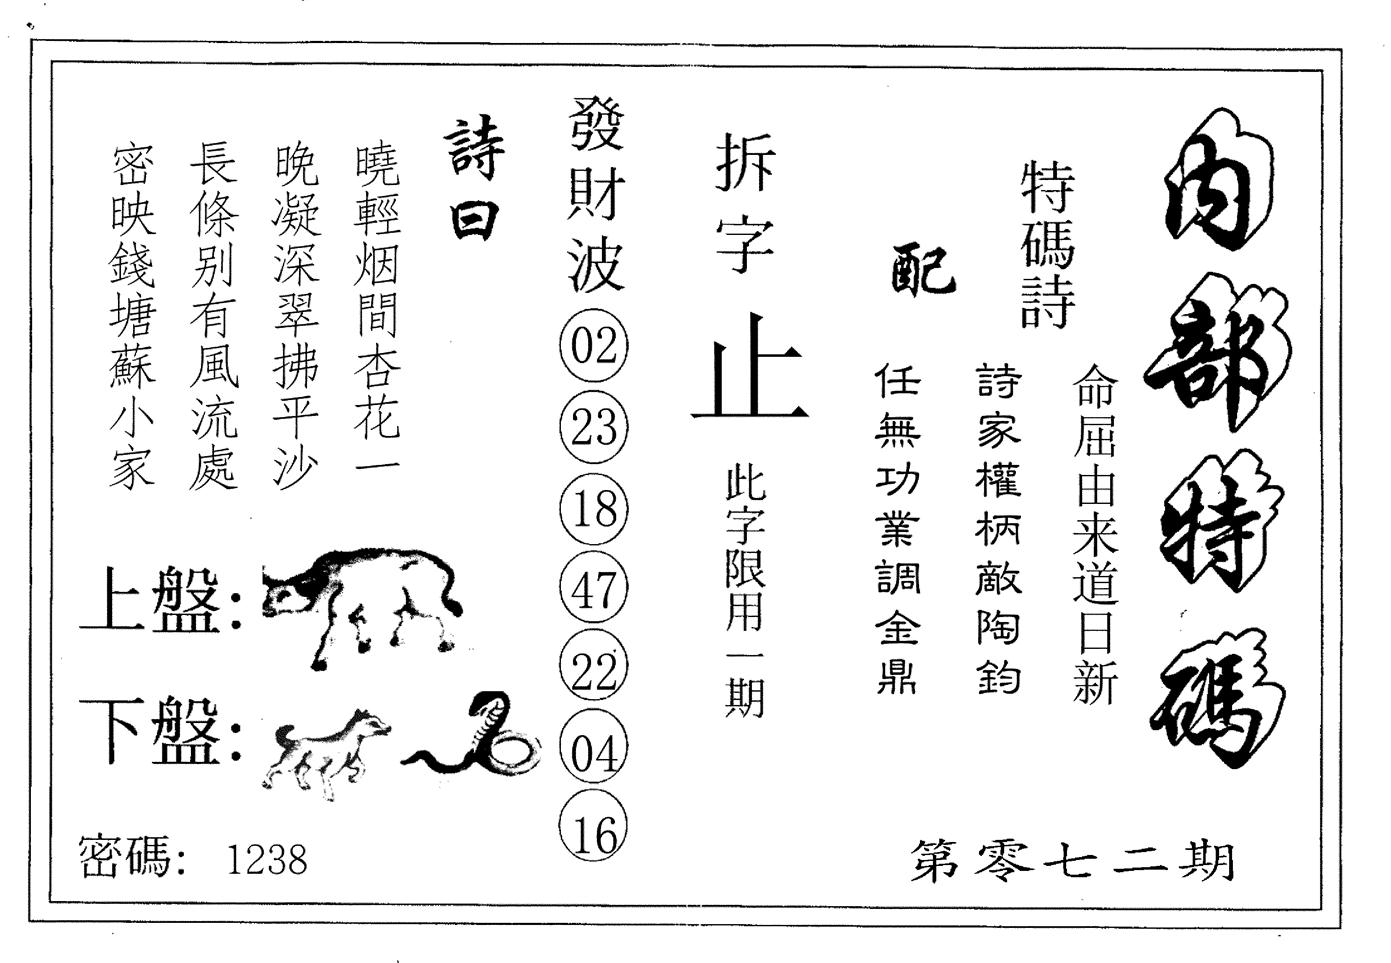 内部特碼
特碼詩
命屈由来道日新
詩家權柄敵陶鈞
任無功業調金鼎
配
第零七二期
拆字
止
此字限用一期
發財波
02
23
18
47
22
04
16
詩曰
曉輕烟間杏花一
晚凝深翠拂平沙
長條别有風流處
密映錢塘蘇小家
上盤：
下盤：
密碼： 1238